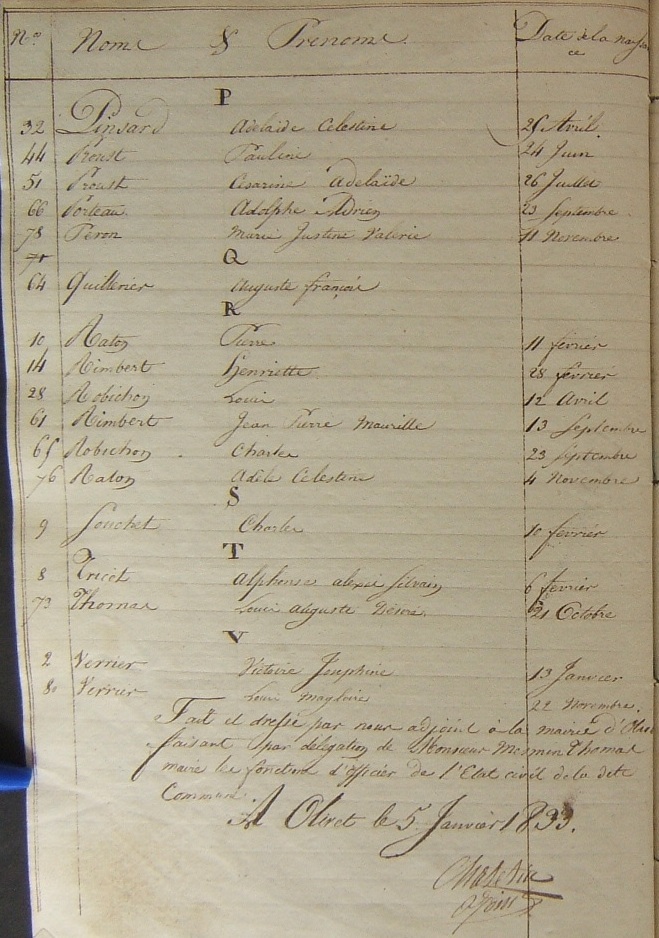 Nos Noms & Prenoms Date de la naissan
ce
P
32 Pinsard Adelaide Celestine 25 Avril.
44 Proust Pauline 24 Juin
51 Proust Cesarine Adelaïde 26 Juillet
66 Porteau Adolphe Adrien 23 Septembre
78 Peron Marie Justine Valerie 11 Novembre
71 Q
64 Quillerier Auguste françois
R
10 Raton Pierre 11 fevrier
14 Rimbert Henriette 28 fevrier
28 Robichon Louis 12 Avril
61 Rimbert Jean Pierre Maurille 13 Septembre
65 Robichon Charles 23 Septembre
76 Raton Adele Celestine 4 Novembre
S
9 Souchet Charles 10 fevrier
T
8 Tricot Alphonse alexis Silvain 6 fevrier
73 Thomas Louis Auguste Désiré 21 Octobre
V
2 Verrier Victoire Josephine 13 Janvier
80 Verrier Louis Magloire 22 Novembre.
Fait et dressé par nous adjoint à la mairie d'
faisant par délégation de Monsieur Mesmin Thomas
maire les fonctions d'officier de l'Etat civil de la dite
Commune.
A Olivet le 5 Janvier 1833.
adjoint